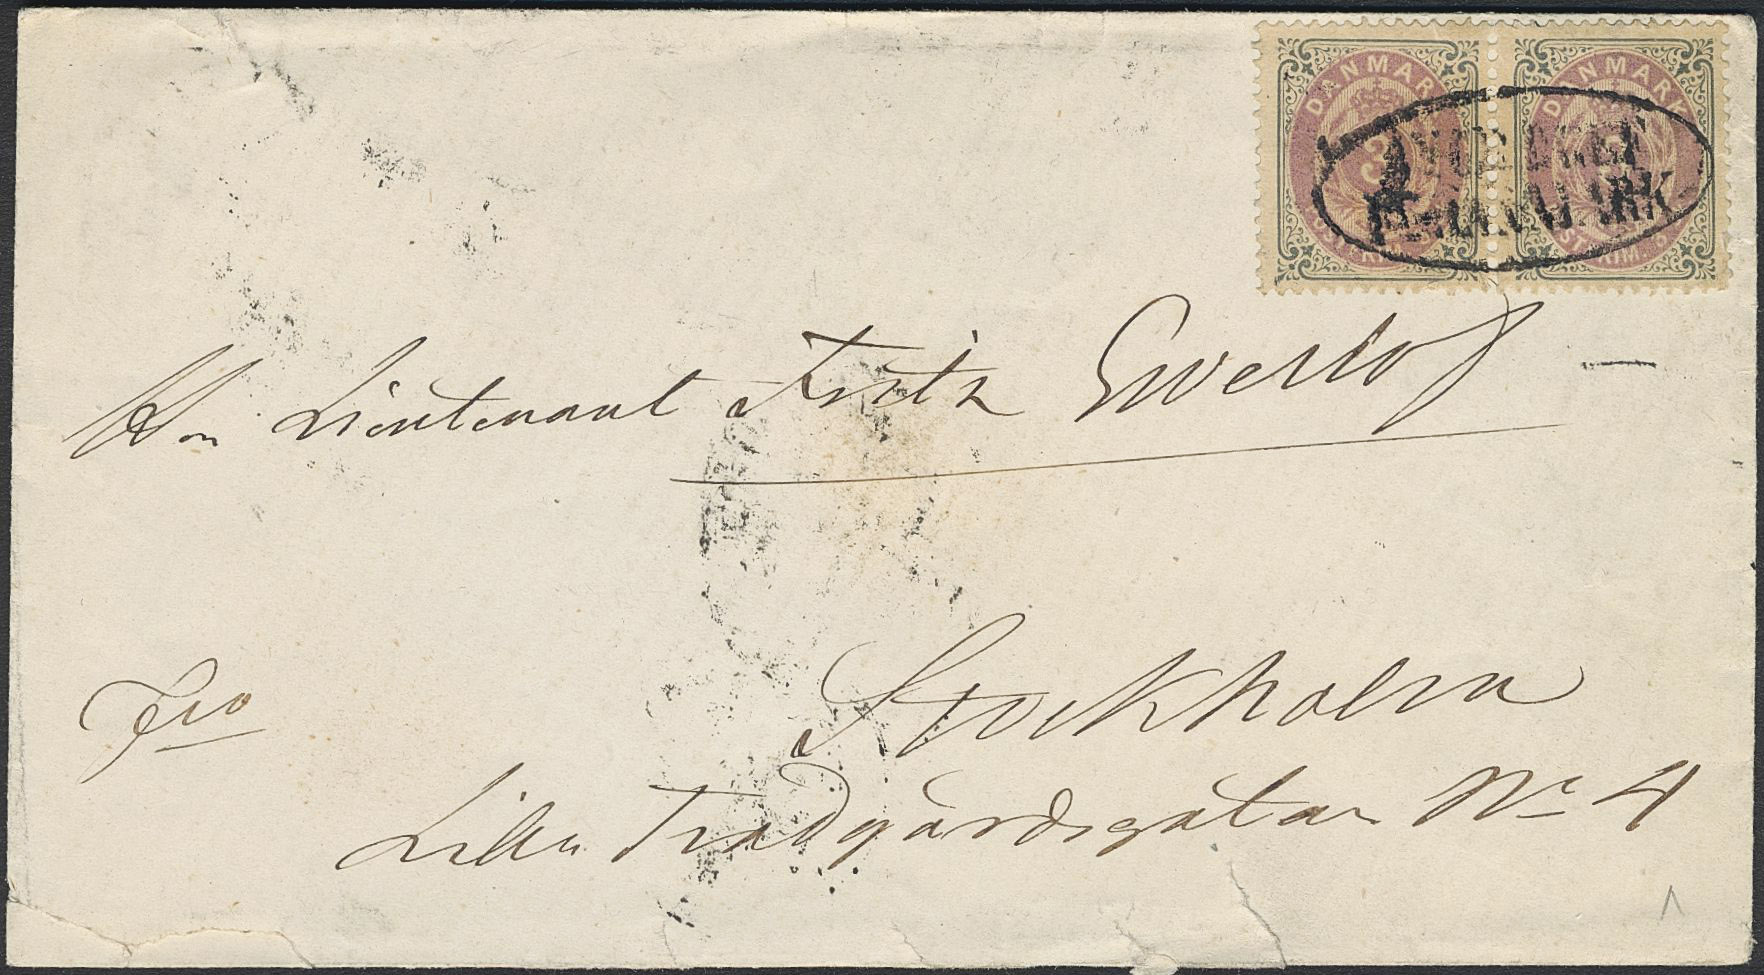 DANMARK DANMARK
3
DANMARK
Hrn Lieutenant Fritz Ewerlöf
Stockholm
Lilla Trädgårdsgatan No 4